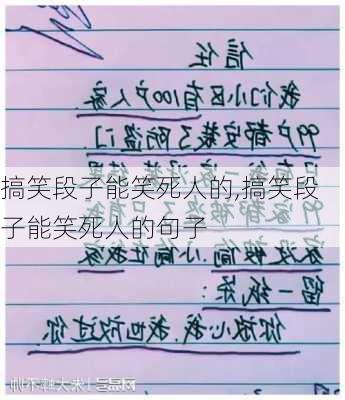 信任
我们小区有100户人家.
99户都安装了防盗门.
搞笑段子能笑死人的,搞笑段
子能笑死人的句子
家没被偷 小偷在我家
留一纸条:
你放心我,我也放过你.